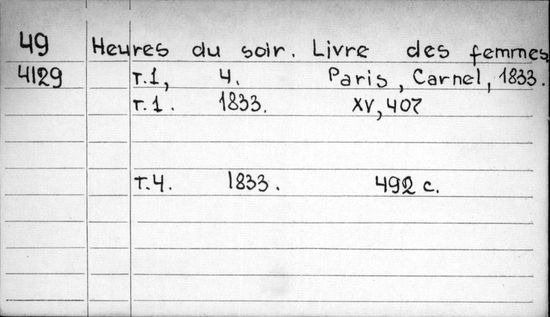 49 Heures du soir. Livre des femmes
4129 т.1, 4. Paris, Carnel, 1833.
т.1. 1833. XV, 407
т.4. 1833. 492 с.